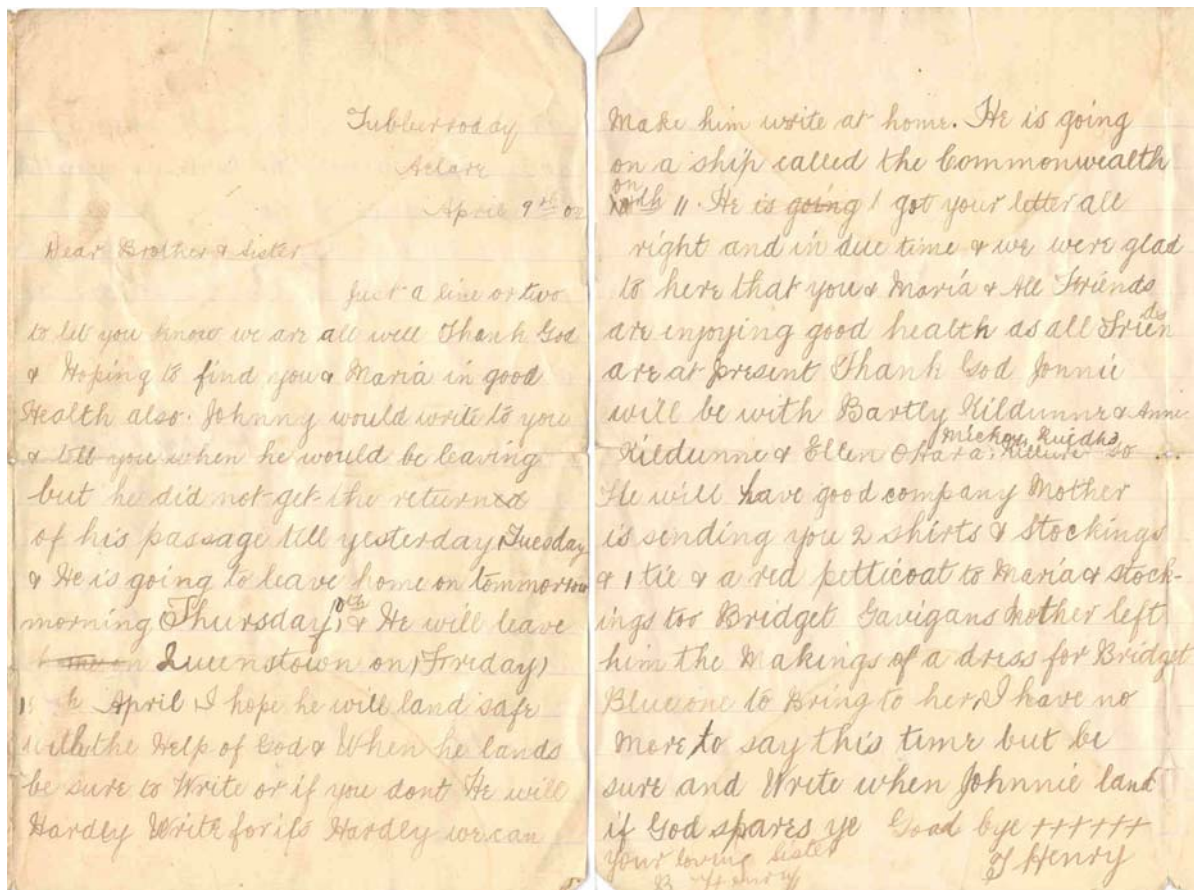 Tubberroddy
Aclare
April 9th 02
Dear Brother & Sister
Just a line or two
to let you know we are all well Thank God
& Hoping to find you & Maria in good
Health also. Johnny would write to you
& tell you when he would be leaving
but he did not get the returned
of his passage till yesterday, Tuesday
& He is going to leave home on tommorrow
morning Thursday, 10th & He will leave
on Queenstown on, Friday,
11th April, I hope he will land safe
with the Help of God & When he lands
be sure to Write or if you dont He will
Hardly Write for its Hardly we can
make him write at home. He is going
on a ship called the Commonwealth
on 11. He is going I got your letter all
right and in due time & we were glad
to here that you & Maria & All Friends
are enjoying good health as all Friends
are at present Thank God Jonnie
will be with Bartly Kildunne & Anne
Kildunne & Ellen OHara, so
He will have good company Mother
is sending you 2 shirts & stockings
& 1 tie & a red petticoat to Maria & stock-
ings too Bridget Gavigans Mother left
him the Makings of a dress for Bridget
to Bring to her, I have no
More to say this time but be
sure and Write when Johnnie land
if God spares ye Good bye ++++++
your loving sister
B Henry
J Henry